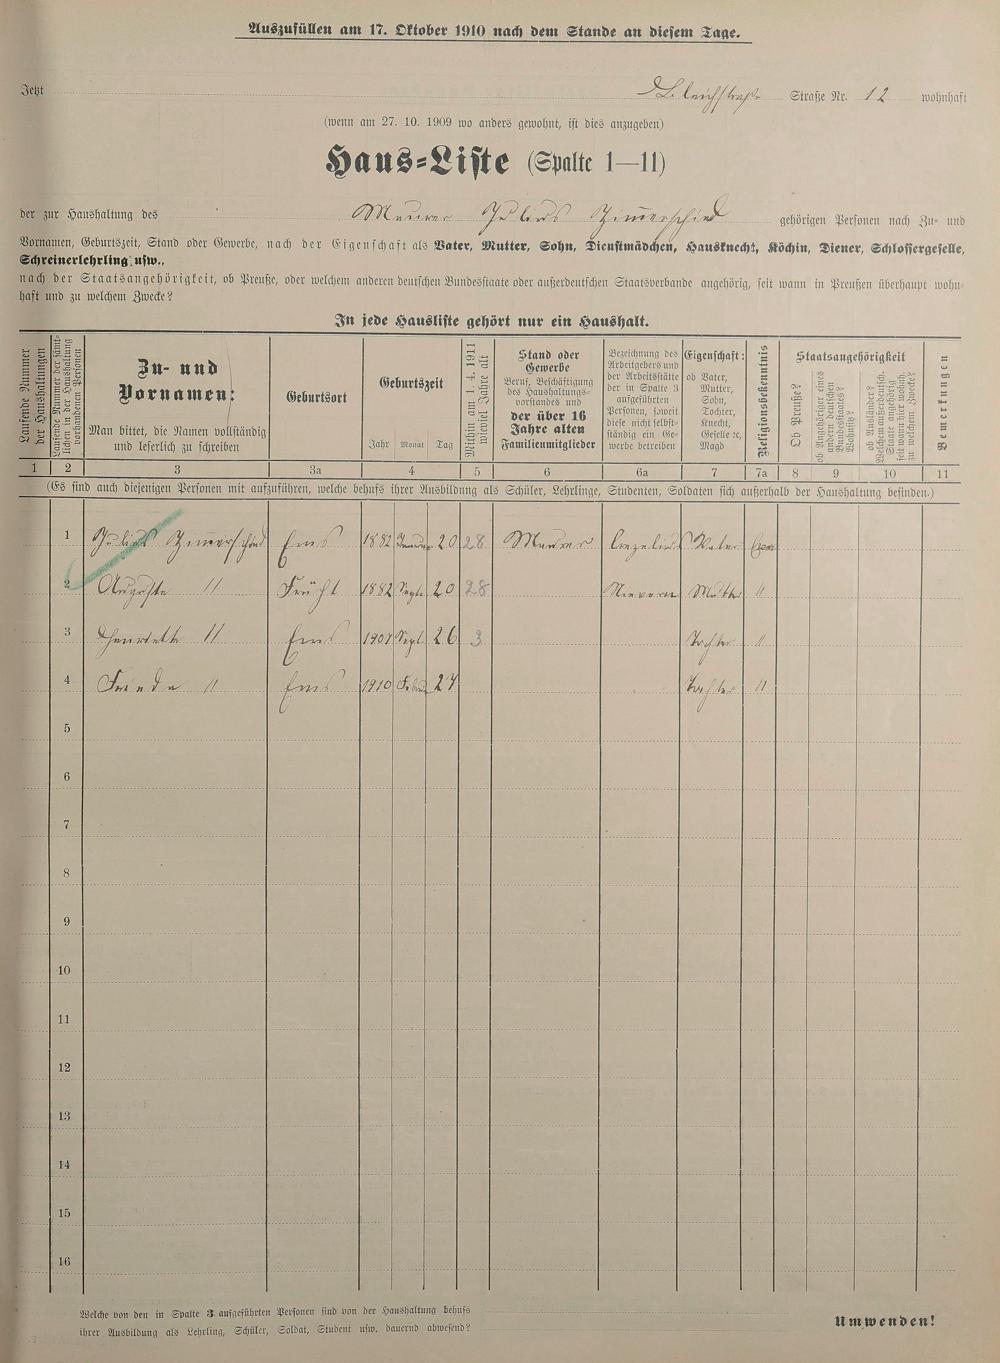 Auszufüllen am 17. Oktober 1910 nach dem Stande an diesem Tage.
Jetzt Bleichstraße Straße Nr. 12 wohnhaft
(wenn am 27. 10. 1909 wo anders gewohnt, ist dies anzugeben)
Haus-Liste (Spalte 1—11)
der zur Haushaltung des Maurer Julius Zimerschied gehörigen Personen nach Zu- und
Vornamen, Geburtszeit, Stand oder Gewerbe, nach der Eigenschaft als Vater, Mutter, Sohn, Dienstmädchen, Hausknecht, Köchin, Diener, Schlossergeselle,
Schreinerlehrling usw.,
nach der Staatsangehörigkeit, ob Preuße, oder welchem anderen deutschen Bundesstaate oder außerdeutschen Staatsverbande angehörig, seit wann in Preußen überhaupt wohn-
haft und zu welchem Zwecke?
In jede Hausliste gehört nur ein Haushalt.
Laufende Nummer
der Haushaltungen
Laufende Nummer der sämt-
lichen in der Haushaltung
vorhandenen Personen
Zu- und
Vornamen:
Man bittet, die Namen vollständig
und leserlich zu schreiben
Geburtsort
Geburtszeit
Jahr Monat Tag
Mithin am 1. 4. 1911
wieviel Jahre alt
Stand oder
Gewerbe
Beruf, Beschäftigung
des Haushaltungs-
vorstandes und
der über 16
Jahre alten
Familienmitglieder
Bezeichnung des
Arbeitgebers und
der Arbeitsstätte
der in Spalte 3
aufgeführten
Personen, soweit
diese nicht selbst-
ständig ein Ge-
werbe betreiben
Eigenschaft:
ob Vater,
Mutter,
Sohn,
Tochter,
Knecht,
Geselle ec,
Magd
Religionsbekenntnis
Staatsangehörigkeit
Ob Preuße?
ob Angehöriger eines
andern deutschen
Bundesstaates?
Wohnsitz?
ob Ausländer?
Welchem außerdeutsch.
Staate angehörig
seit wann hier wohnh.
zu welchem Zwecke?
Bemerkungen
1 2 3 3a 4 5 6 6a 7 7a 8 9 10 11
(Es sind auch diejenigen Personen mit aufzuführen, welche behufs ihrer Ausbildung als Schüler, Lehrlinge, Studenten, Soldaten sich außerhalb der Haushaltung befinden.)
1 Julius Zimerschied Ems 1882 Januar 20 28 Maurer Vater
2 Auguste " Frücht 1882 Sept. 20 28 Nievern Mutter "
3 Henriette " Ems 1907 Sept. 26 3 Tochter "
4 Frieda " Ems 1910 Febr. 27 Tochter "
5
6
7
8
9
10
11
12
13
14
15
16
Welche von den in Spalte 3 aufgeführten Personen sind von der Haushaltung behufs
ihrer Ausbildung als Lehrling, Schüler, Soldat, Student usw. dauernd abwesend?
Umwenden!